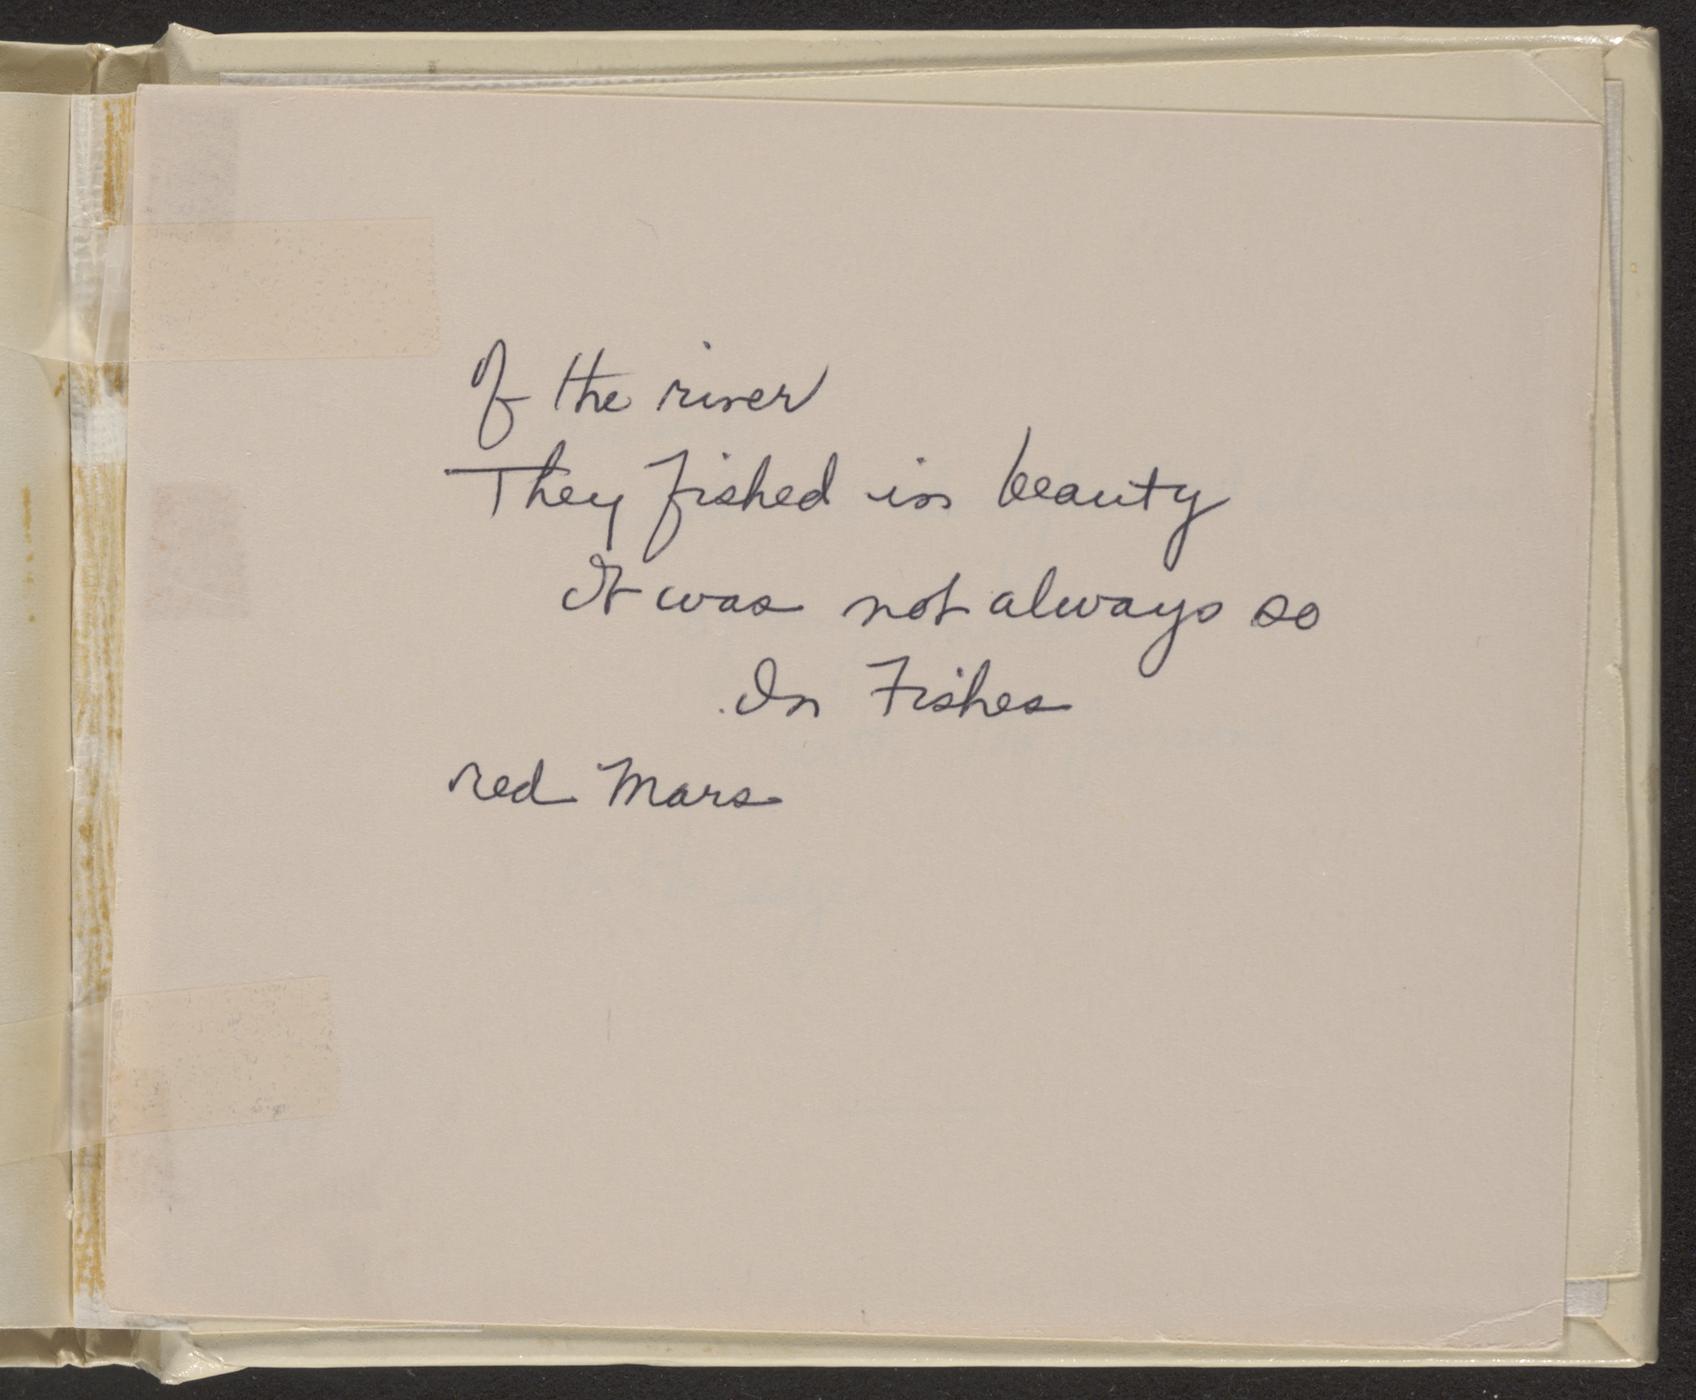 Of the river
They fished in beauty
It was not always so
In Fishes
red Mars